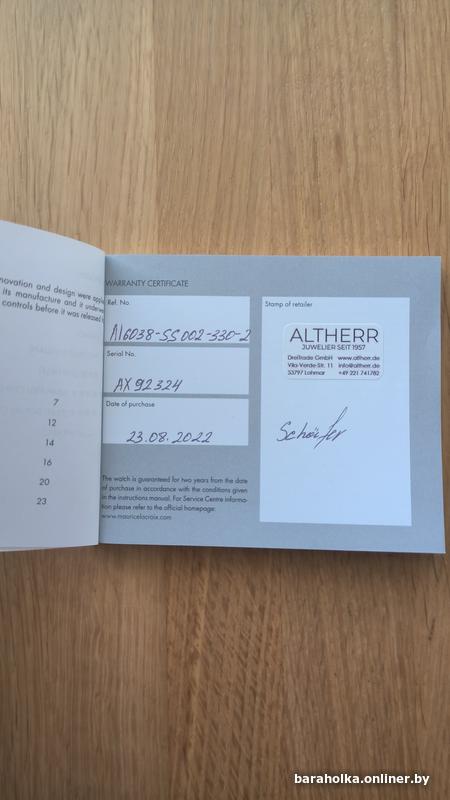 novation and design were
its manufacture and it
controls before it was released
7
12
14
16
20
23
WARRANTY CERTIFICATE
Ref. No.
AI6038-SS002-330-2
Serial No.
AX92324
Date of purchase
23.08.2022
The watch is guaranteed for two years from the date
of purchase in accordance with the conditions given
in the instructions manual. For Service Centre informa-
tion please refer to the official homepage:
www.mauricelacroix.com
Stamp of retailer
ALTHERR
JUWELIER SEIT 1957
DreiTrade GmbH www.altherr.de
Vila-Verde-Str. 11 info@altherr.de
53797 Lohmar +49 221 741782
Schäfer
baraholka.onliner.by